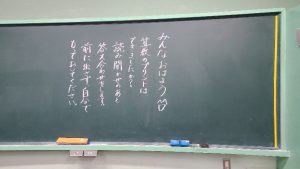 みんなおはよう
算数のプリントは
できましたか?
読み聞かせのあと
答え合わせをします。
前に出さず、自分で
もっておいてください。